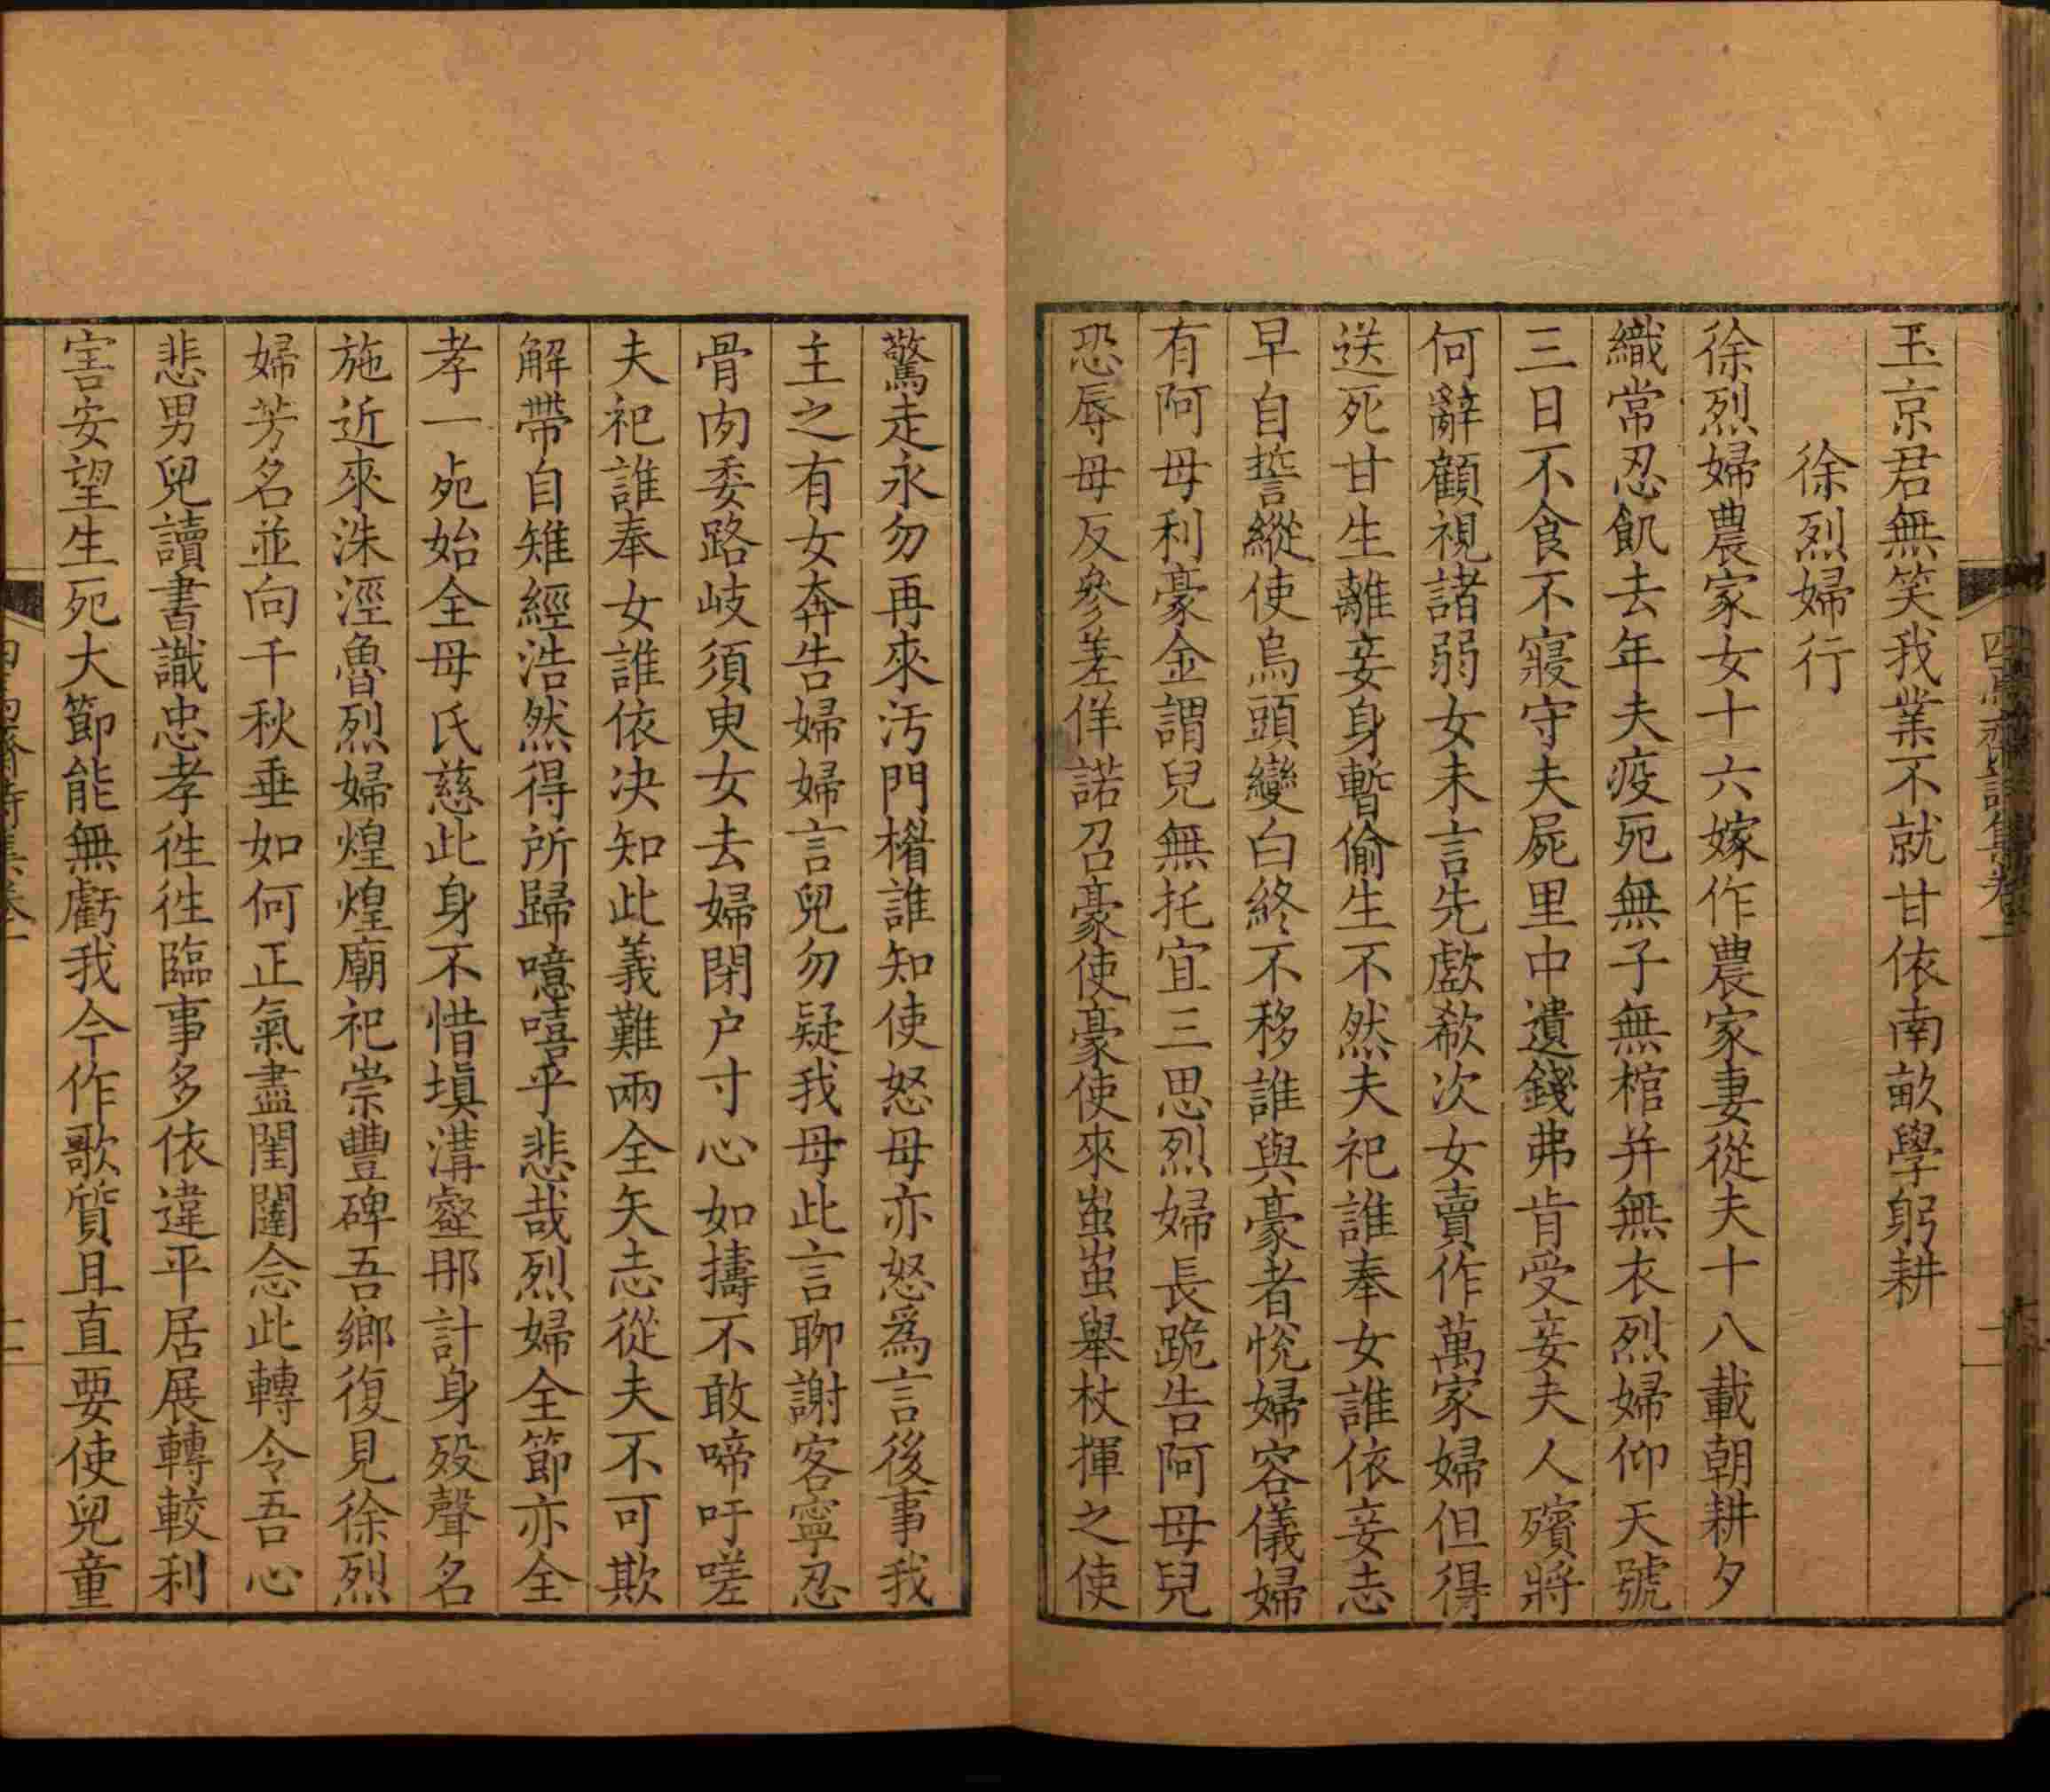 玉京君無笑我業不就甘依南畝學躬耕
徐烈婦行
徐烈婦農家女十六嫁作農家妻從夫十八載朝耕夕
織常忍飢去年夫疫死無子無棺并無衣烈婦仰天號
三日不食不寢守夫屍里中遺錢弗肯受妾夫人殯將
何辭顧視諸弱女未言先歔欷次女賣作萬家婦但得
送死甘生離妾身暫偷生不然夫祀誰奉女誰依妾志
早自誓縱使烏頭變白終不移誰與豪者悅婦容儀婦
有阿母利豪金謂兒無托宜三思烈婦長跪告阿母兒
恐辱母反參差佯諾召豪使豪使來蚩蚩舉杖揮之使
驚走永勿再來污門楣誰知使怒母亦怒爲言後事我
主之有女奔告婦婦言兒勿疑我母此言聊謝客寧忍
骨肉委路岐須臾女去婦閉户寸心如擣不敢啼吁嗟
夫祀誰奉女誰依决知此義難兩全矢志從夫不可欺
解帶自雉經浩然得所歸噫嘻乎悲哉烈婦全節亦全
孝一死始全母氏慈此身不惜塡溝壑那計身殁聲名
施近來洙涇魯烈婦煌煌廟祀崇豐碑吾鄉復見徐烈
婦芳名並向千秋垂如何正氣盡閨闥念此轉令吾心
悲男兒讀書識忠孝徃徃臨事多依違平居展轉較利
害安望生死大節能無虧我今作歌質且直要使兒童
齋詩集卷一